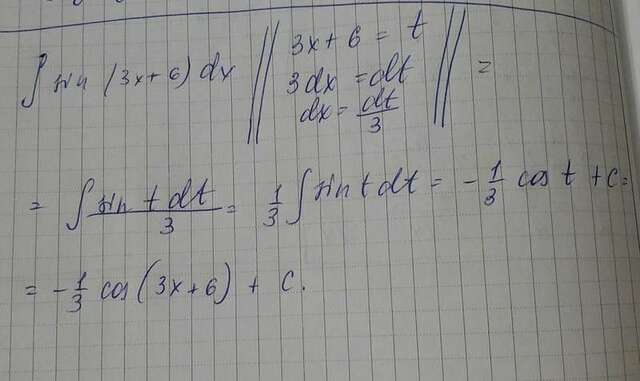 ∫ sin (3x+6) dx || 3x+6 = t
3dx = dt
dx = dt/3 || =
= ∫ sin t dt / 3 = 1/3 ∫ sin t dt = - 1/3 cos t + C =
= - 1/3 cos (3x+6) + C.